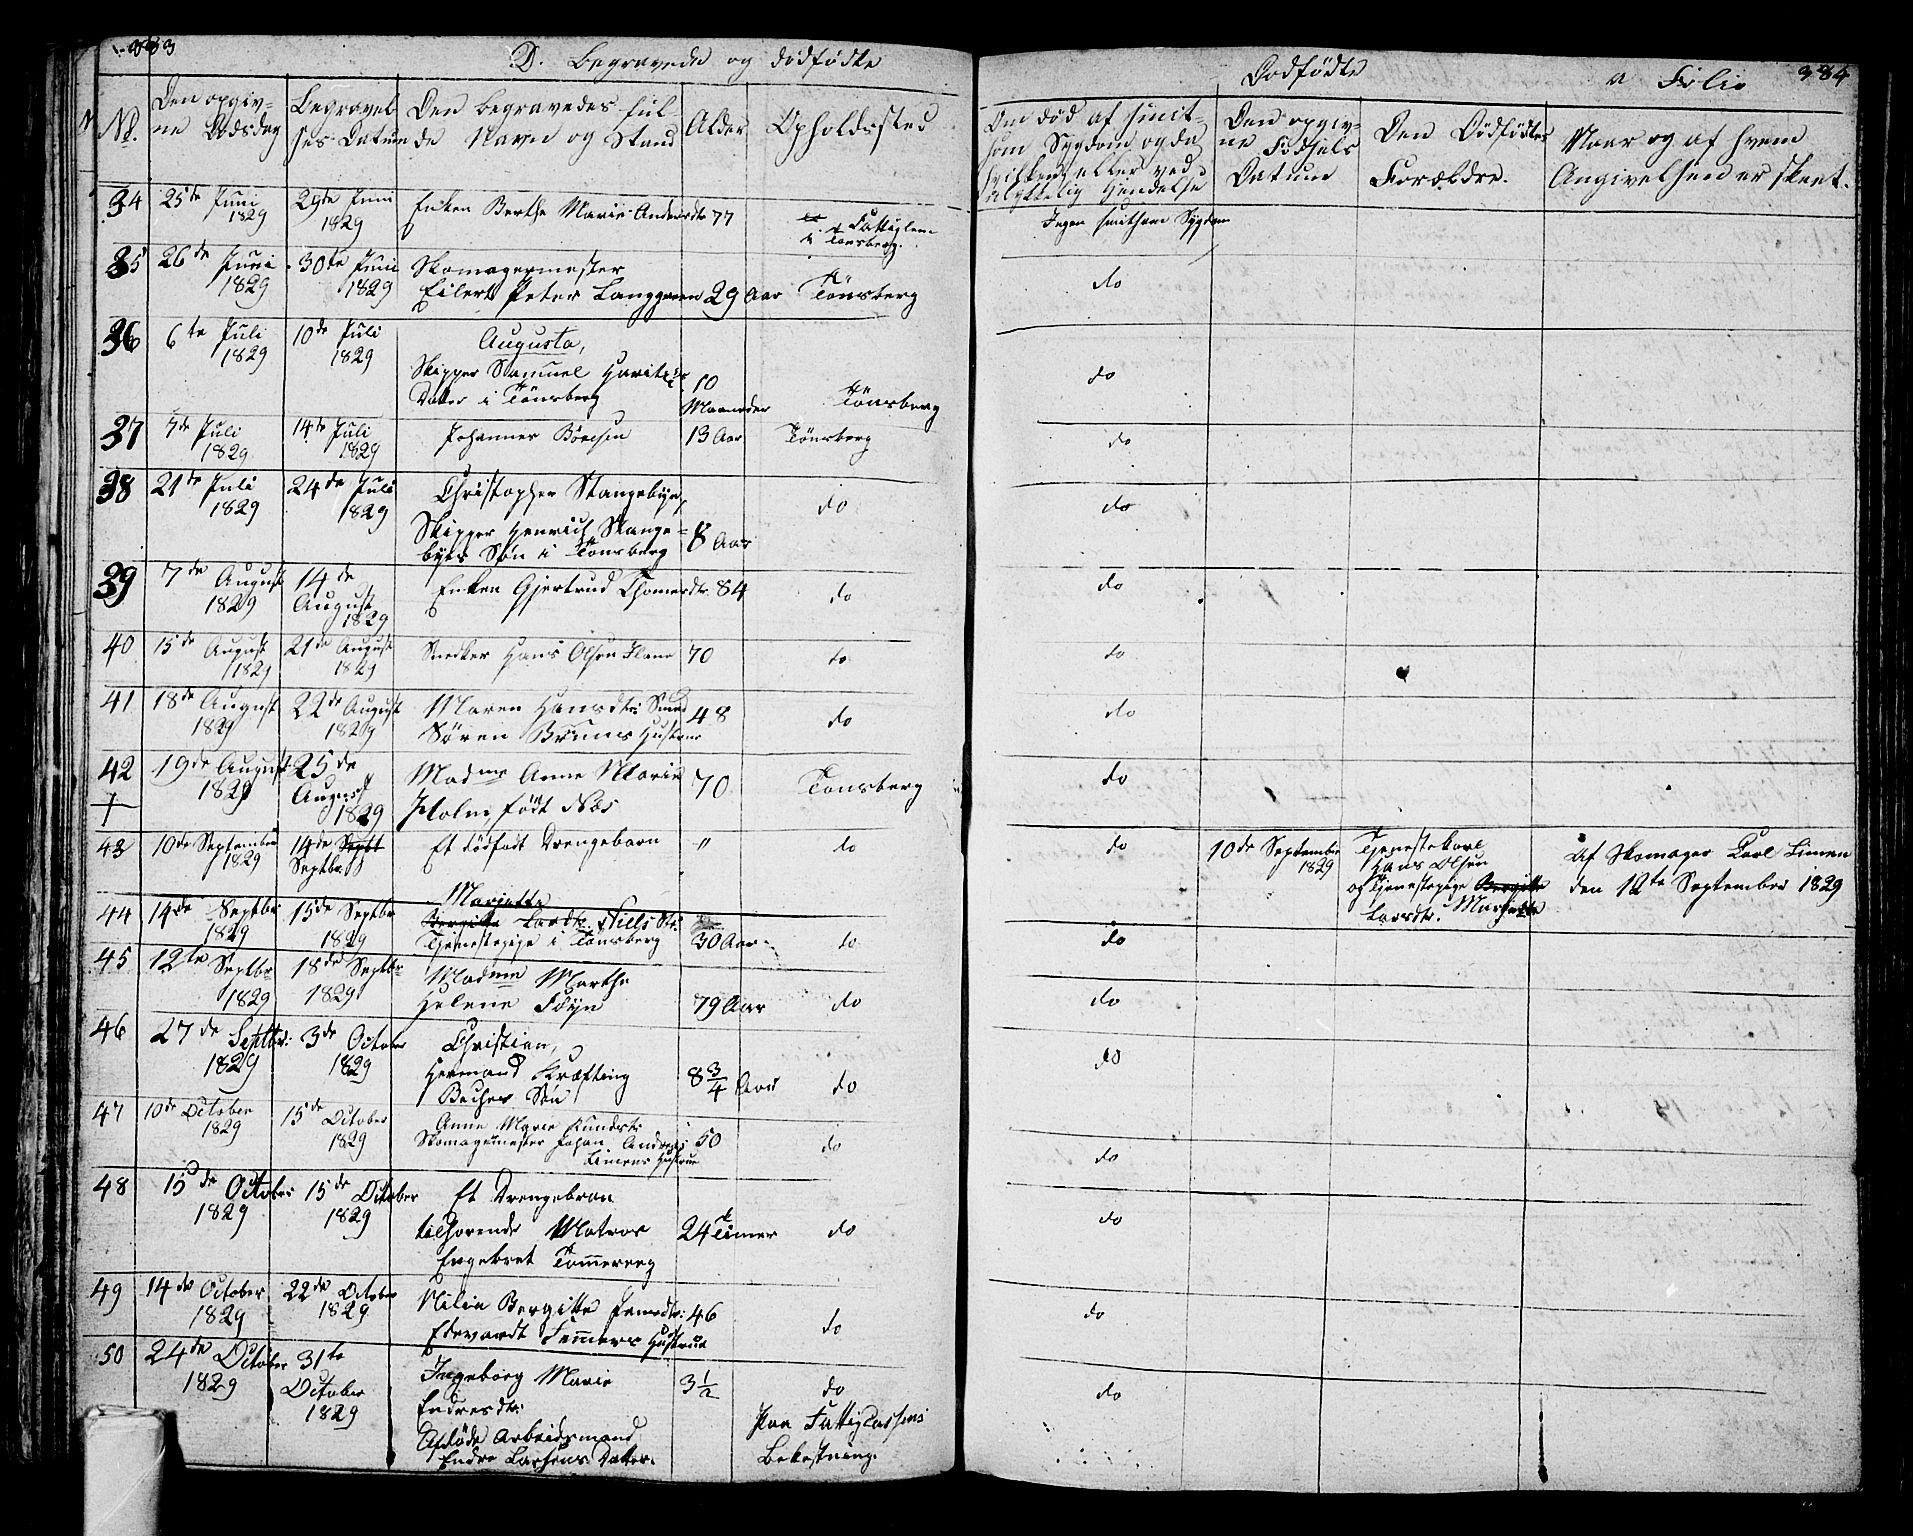 383
D. Begravede og dödfödte
No.
Den opgiv-
ne Dödsdag
Begravel-
ses-Datum
Den begravedes ful-
de Navn og Stand
Alder
Opholdssted
34 25de Juni 1829 29de Juni 1829 Enken Berthe Marie Andersdtr 77
i Tönsberg.
35 26de Juni 1829 30te Juni 1829 Skomagermester
Eilert Peter Langgaven 29 Aar Tönsberg
36 6te Juli 1829 10de Juli 1829 Augusta,
Skipper Samuel
Datter i Tönsberg 10 Maaneder Tönsberg
37 7de Juli 1829 14de Juli 1829 Johannes Böresen 13 Aar Tönsberg
38 21de Juli 1829 24de Juli 1829 Christopher Stangebÿe,
Skipper Henrich Stange-
bÿes Sön i Tönsberg 8 Aar do
39 7de August 1829 14de August 1829 Enken Gjertrud Thomesdtr. 84 do
40 15de August 1829 21de August 1829 Snedker Hans Olsen 70 do
41 18de August 1829 22de August 1829 Maren Hansdtr: Smed
Sören Bruuns Hustrue 48 do
42 19de August 1829 25de August 1829 Madme Anne Marie
Holm, födt Næs 70 Tönsberg
43 10de September 1829 14de Septt Septbr. Et dödfödt Drengebarn " do
44 14de Septbr 1829 15de Septbr 1829 Mariette
Bergitte Larsdtr. Niels Dtr.
Tjenestepige i Tönsberg 30 Aar do
45 12te Septbr 1829 18de Septbr 1829 Madme Marthe
Helene Föÿn 79 Aar do
46 27de Septbr: 1829 3de October 1829 Christian,
Hermand Kræfting
Baches Sön 8 3/4 Aar do
47 10de October 1829 15de October 1829 Anne Marie Knudsdtr
Skomagermester Johan Andreas
Limens Hustrue 50 do
48 15de October 1829 15de October 1829 Et Drengebarn
tilhørende Matros
Engebret Tömmeraas 24 Timer do
49 14de October 1829 22de October 1829 Nilia Bergitte Jensdtr:
Edevardt Hustrue 46 do
50 24de October 1829 31te October 1829 Ingeborg Marie
Endresdtr:
Afdöde Arbeidsmand
Endre Larsens Datter. 3 1/2 do
Paa Fattigcassens
Bekostning.
Dödfödte
a Folio 384
Om död af smit-
som Sygdom og da
hvilken, eller ved
ulykkelig Hendelse
Den opgiv-
ne Födsels
Datum
Den Dödfödtes
Forældre.
Naar og af hvem
Angivelsen er skeet.
Ingen smitsom Sygdom
do
do
do
do
do
do
do
do
do 10de September 1829 Tjenestekarl
Hans Olsen
og Tjenestepige Bergitte
Larsdtr. Mariette
Af Skomager Carl Limen
den 12te September 1829
do
do
do
do
do
do
do